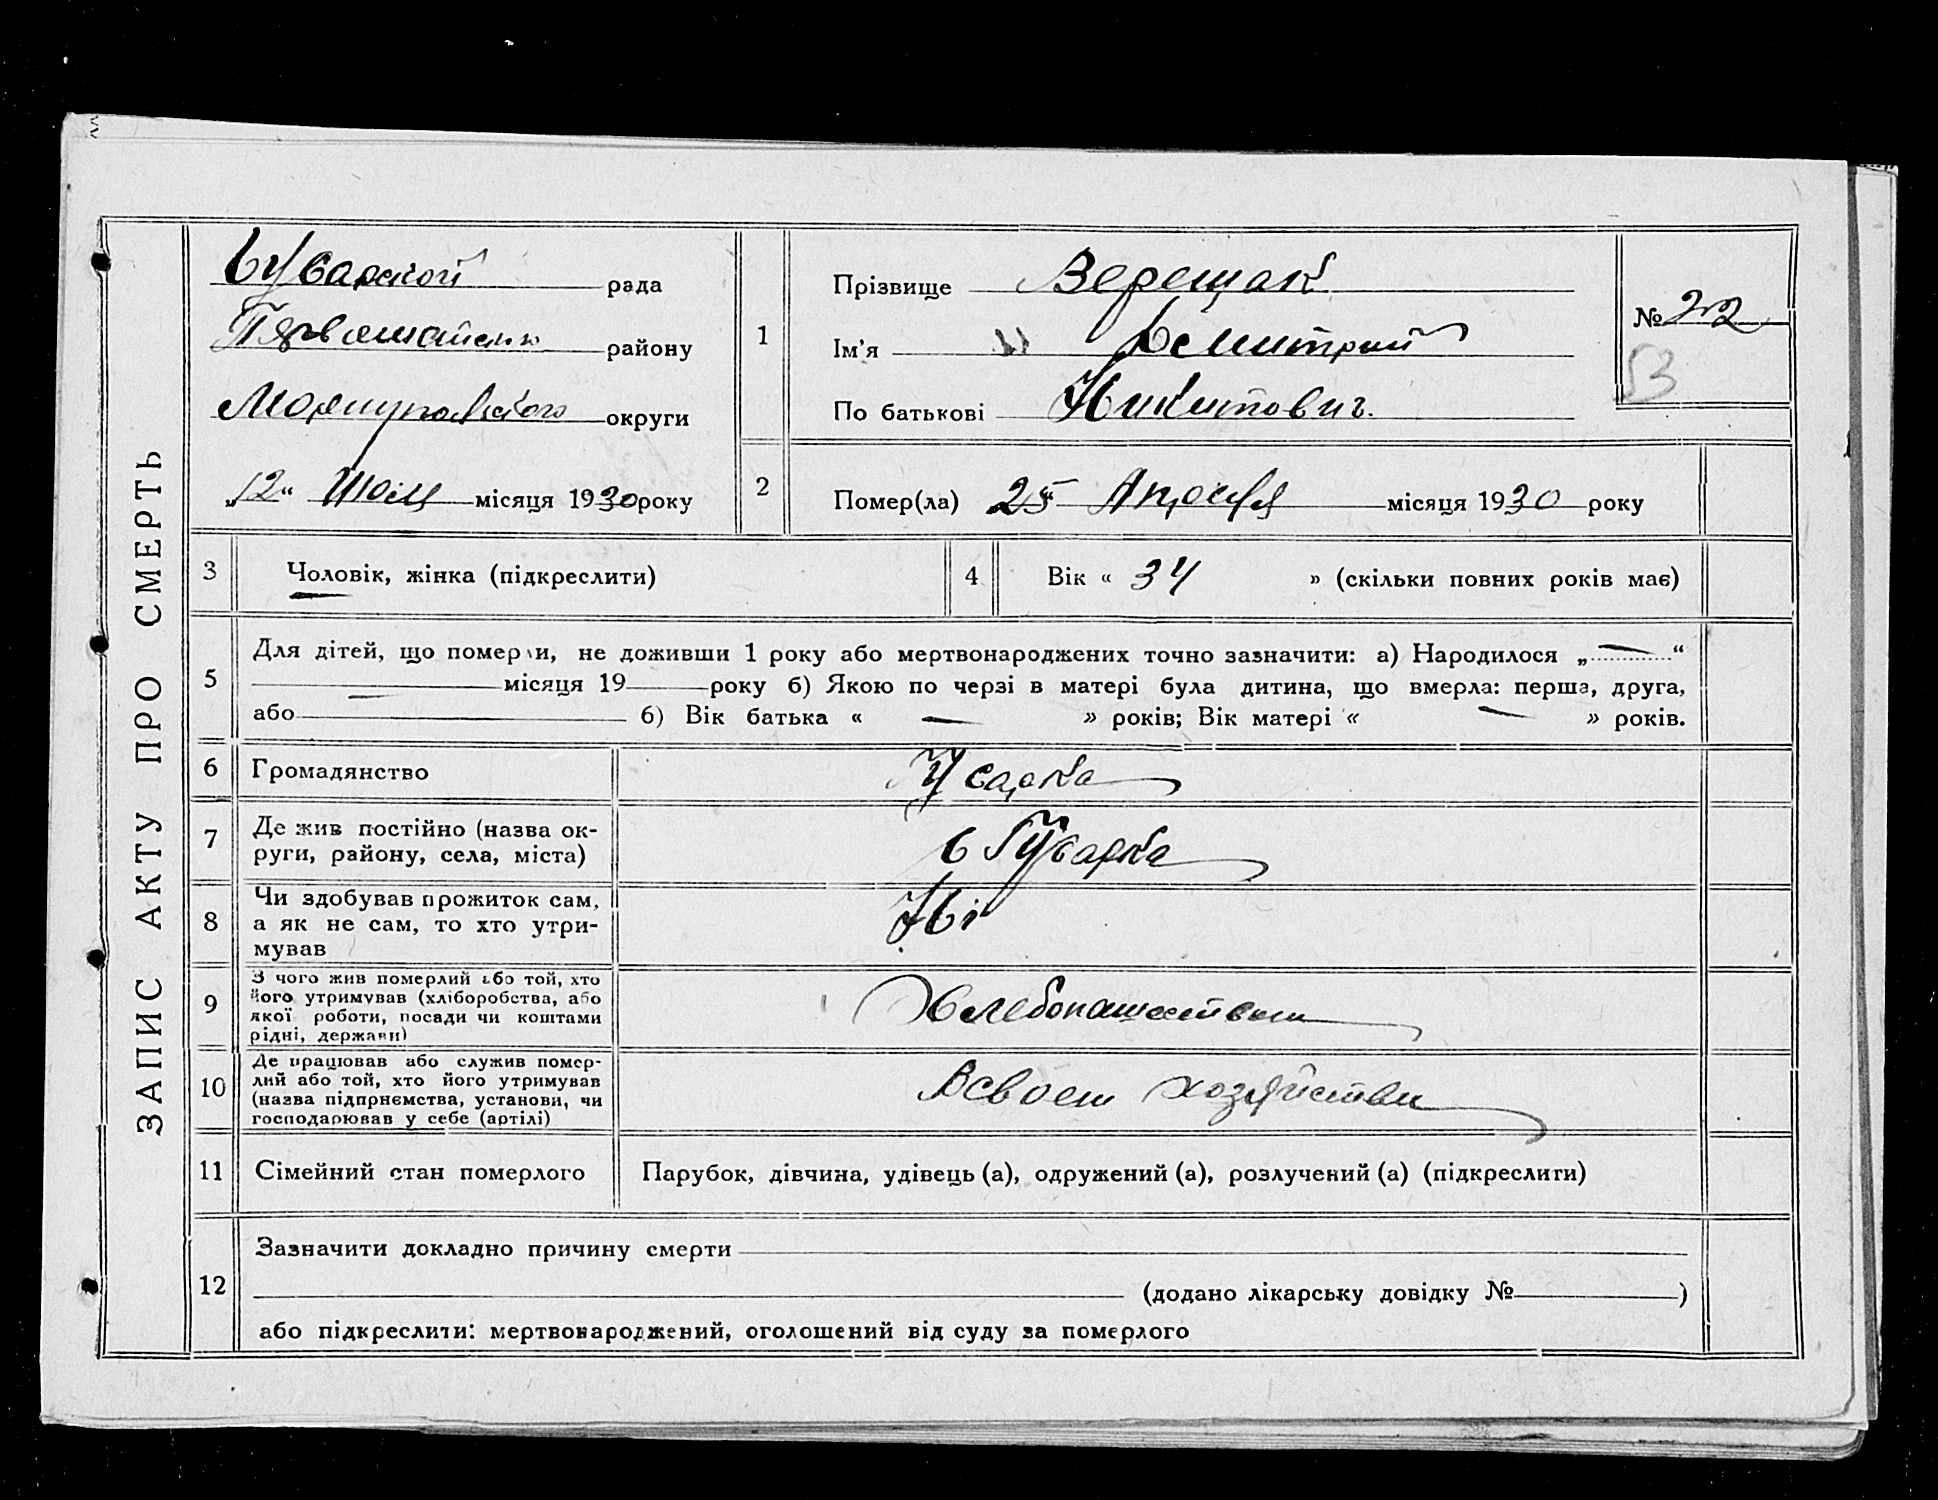 ЗАПИС АКТУ ПРО СМЕРТЬ
рада
району
округи
„12“ місяця 1930 року
1
Прізвище Верещак
Ім'я Дмитрий
По батькові Никитович.
№ 22
53
2
Помер(ла) 25 Апреля місяця 1930 року
3
Чоловік, жінка (підкреслити)
4
Вік « 34 » (скільки повних років має)
5
Для дітей, що померли, не доживши 1 року або мертвонароджених точно зазначити: а) Народилося „ “
місяця 19 року б) Якою по черзі в матері була дитина, що вмерла: перша, друга,
або б) Вік батька « » років; Вік матері « » років.
6
Громадянство
7
Де жив постійно (назва ок-
руги, району, села, міста)
8
Чи здобував прожиток сам,
а як не сам, то хто утри-
мував
9
З чого жив померлий або той, хто
його утримував (хліборобства, або
якої роботи, посади чи коштами
рідні, держави)
10
Де працював або служив помер-
лий або той, хто його утримував
(назва підприємства, установи, чи
господарював у себе (артілі)
хозяйстви
11
Сімейний стан померлого
Парубок, дівчина, удівець (а), одружений (а), розлучений (а) (підкреслити)
12
Зазначити докладно причину смерти
(додано лікарську довідку № )
або підкреслити: мертвонароджений, оголошений від суду за померлого